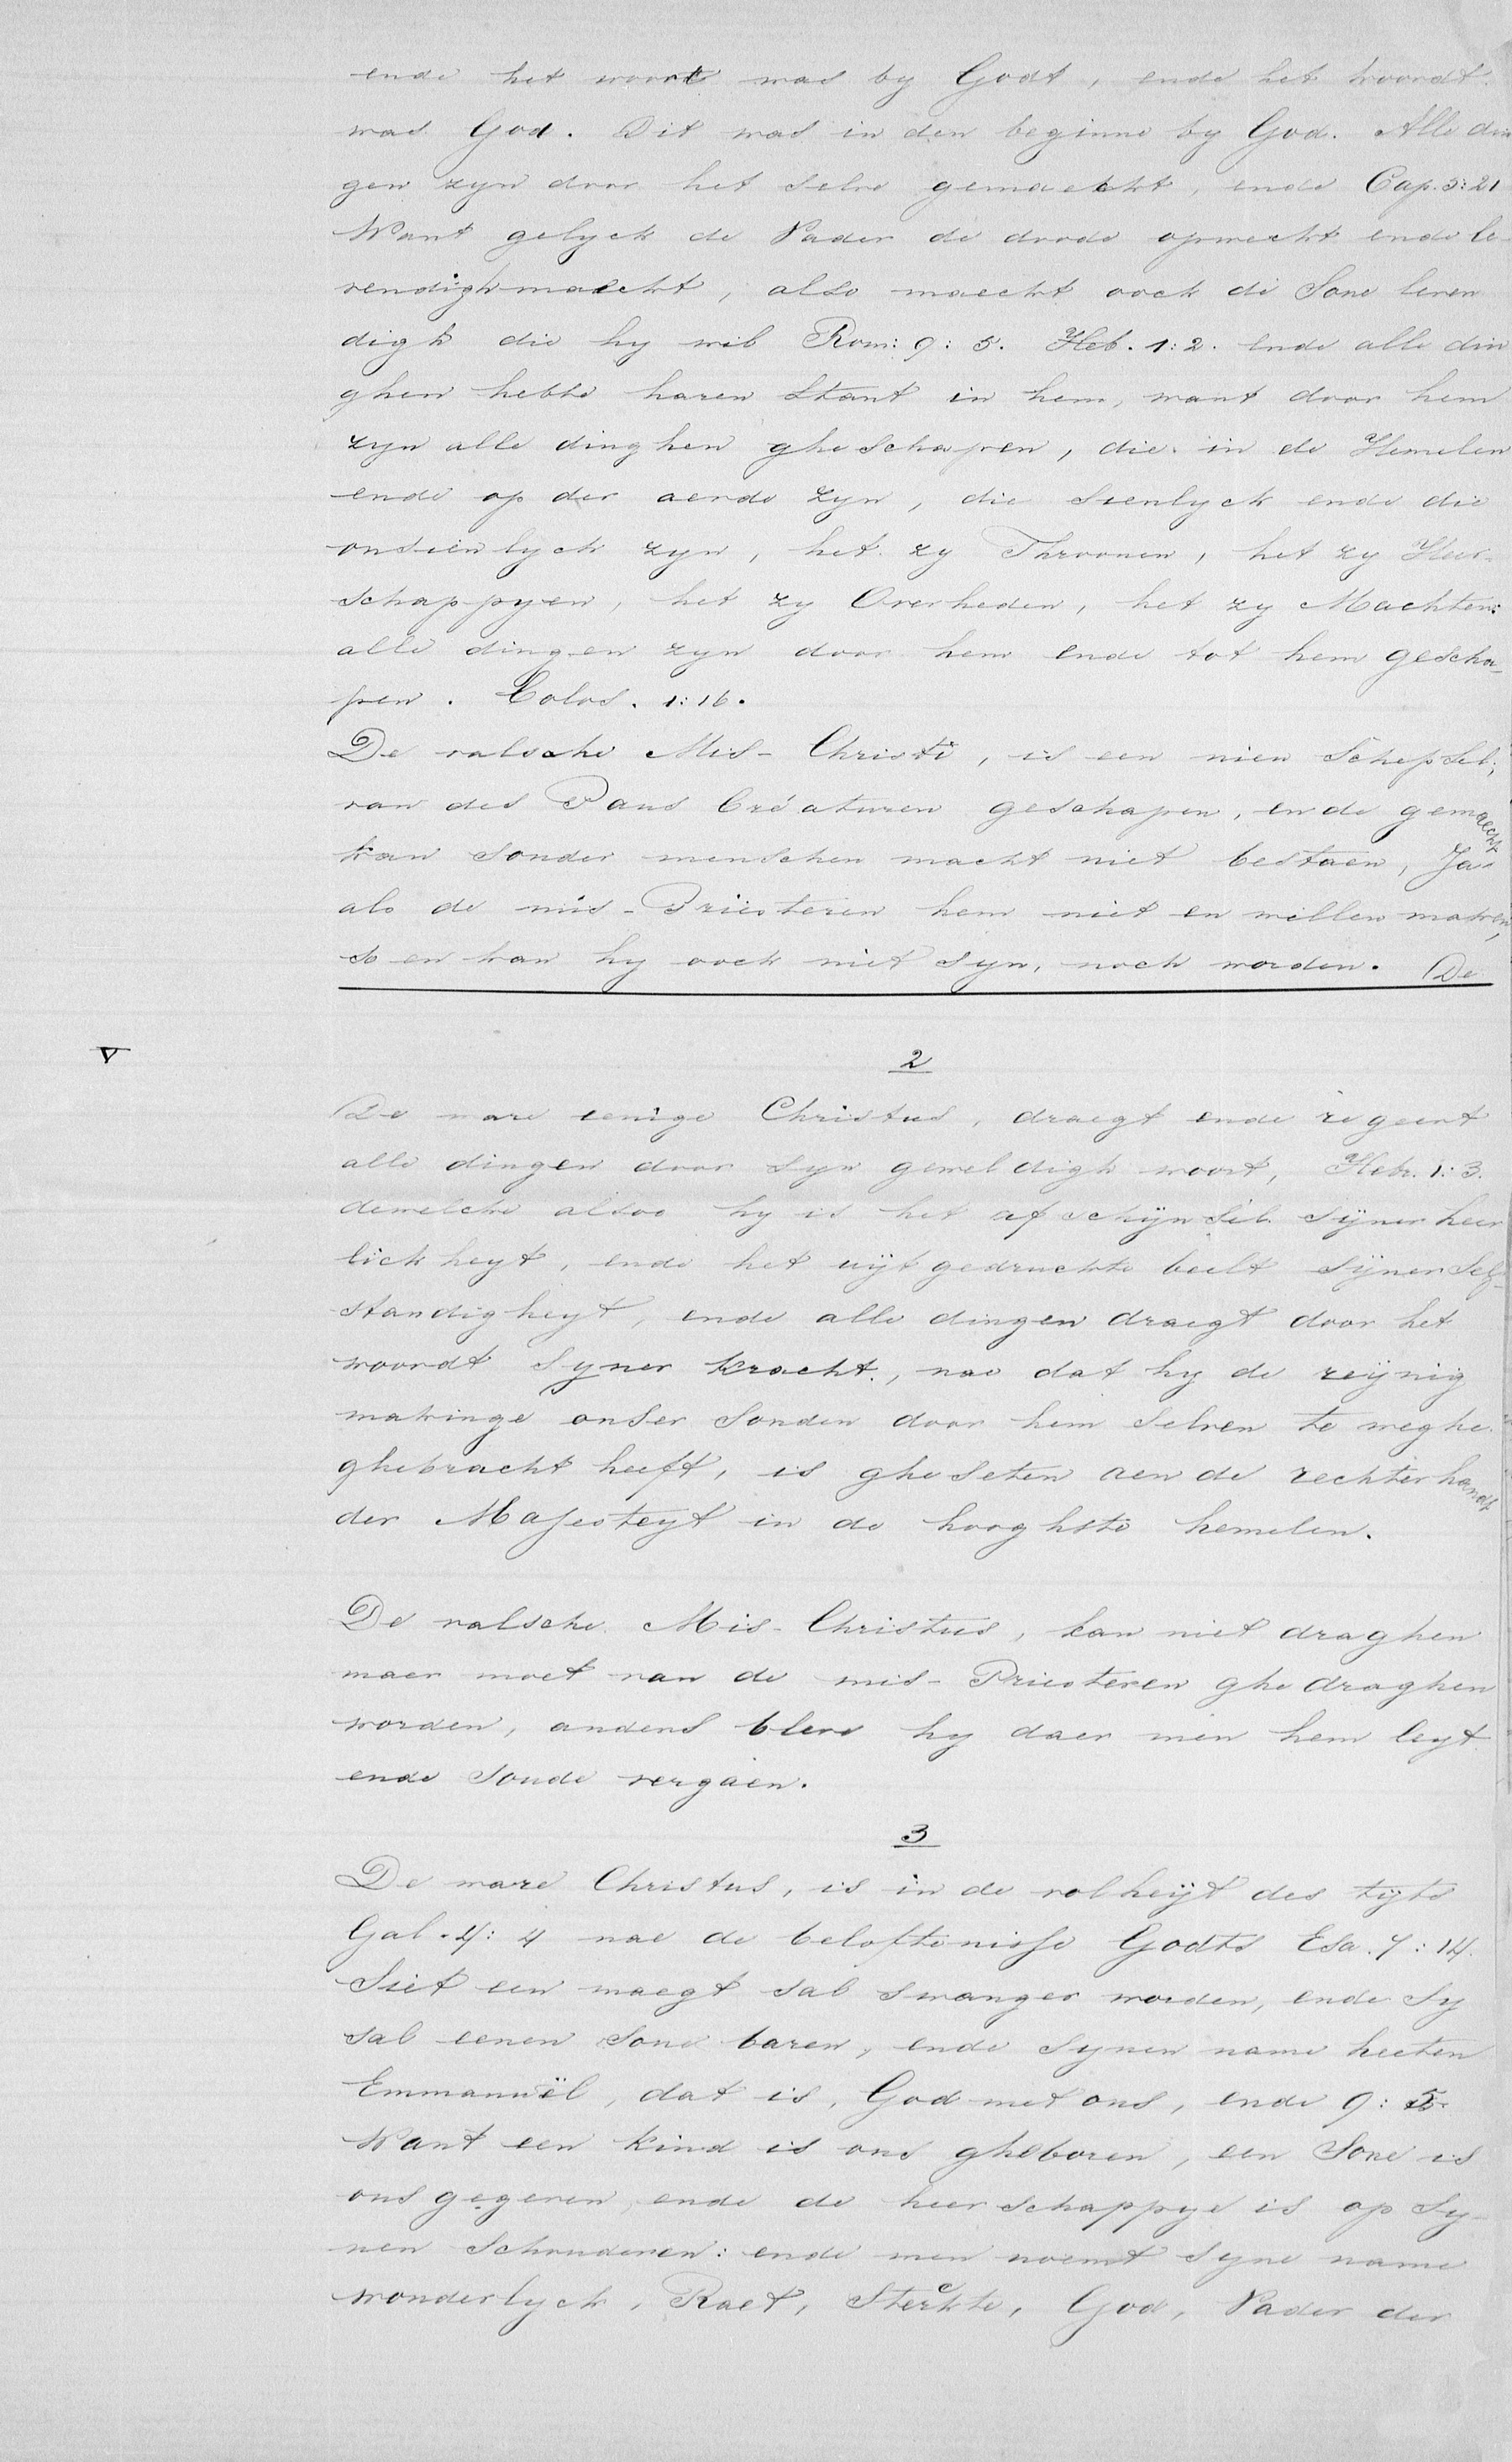 ende het woort was by Godt, ende het woordt
was God. Dit was in den beginne by God. Alle din
gen zyn door het selve gemaeckt, ende Cap. 5:21
Want gelyck de Vader de doode opweckt ende le-
vendigh maeckt, also maeckt oock de Sone leven
digh die hy wil Rom: 9: 5. Heb. 1:2. ende alle din
ghen hebbe haren Stant in hem, want door hem
zyn alle dinghen gheschapen, die in de Hemelen
ende op der aerde zyn, die Sienlyck ende die
onsienlyck zyn, het zy Throonen, het zy Heer-
schappyen, het zy Overheden, het zy Machten:
alle dingen zyn door hem ende tot hem gescha-
pen. Colos. 1:16.
De valsche Mis-Christi, is een nieu Schepsel,
van des Paus Creaturen geschapen, ende gemaeckt
kan sonder menschen macht niet bestaen, Ja
als de mis-Priesteren hem niet en willen maken,
so en kan hy oock niet syn, noch worden. De
V
2
De ware eenige Christus, draegt ende regeert
alle dingen door Syn geweldigh woort, Hebr. 1:3.
dewelcke alsoo hy is het afschijnsel sijner heer
lickheyt, ende het uijtgedruckte beelt sijner Self-
standigheyt, ende alle dingen draegt door het
woordt Syner kracht, nae dat hy de reijnig
makinge onser Sonden door hem Selven te weghe
ghebracht heeft, is gheseten aen de rechterhandt
der Majesteyt in de hooghste hemelen.
De valsche Mis-Christus, kan niet draghen
maer moet van de mis-Priesteren ghedraghen
worden, anders bleve hy daer men hem leyt
ende soude vergaen.
3
De ware Christus, is in de volheijt des tijts
Gal. 4: 4 nae de beloftenisse Godts Esa. 7:14.
Siet een maegt sal swanger worden, ende Sy
sal eenen Sone baren, ende Synen name heeten
Emmanuël, dat is, God met ons, ende 9: 5.
Want een kind is ons gheboren, een Sone is
ons gegeven, ende de heerschappye is op Sy-
nen Schouderen: ende men noemt Syne name
wonderlyck, Raet, Sterckte, God, Vader der